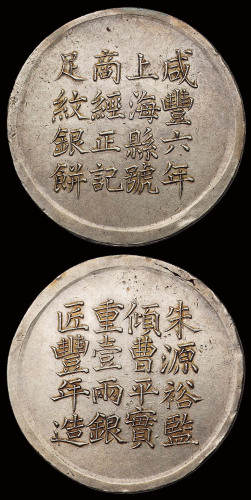 咸豐六年
上海縣號
商經正記
足紋銀餅
朱源裕監
傾曹平實
重壹兩銀
匠豐年造